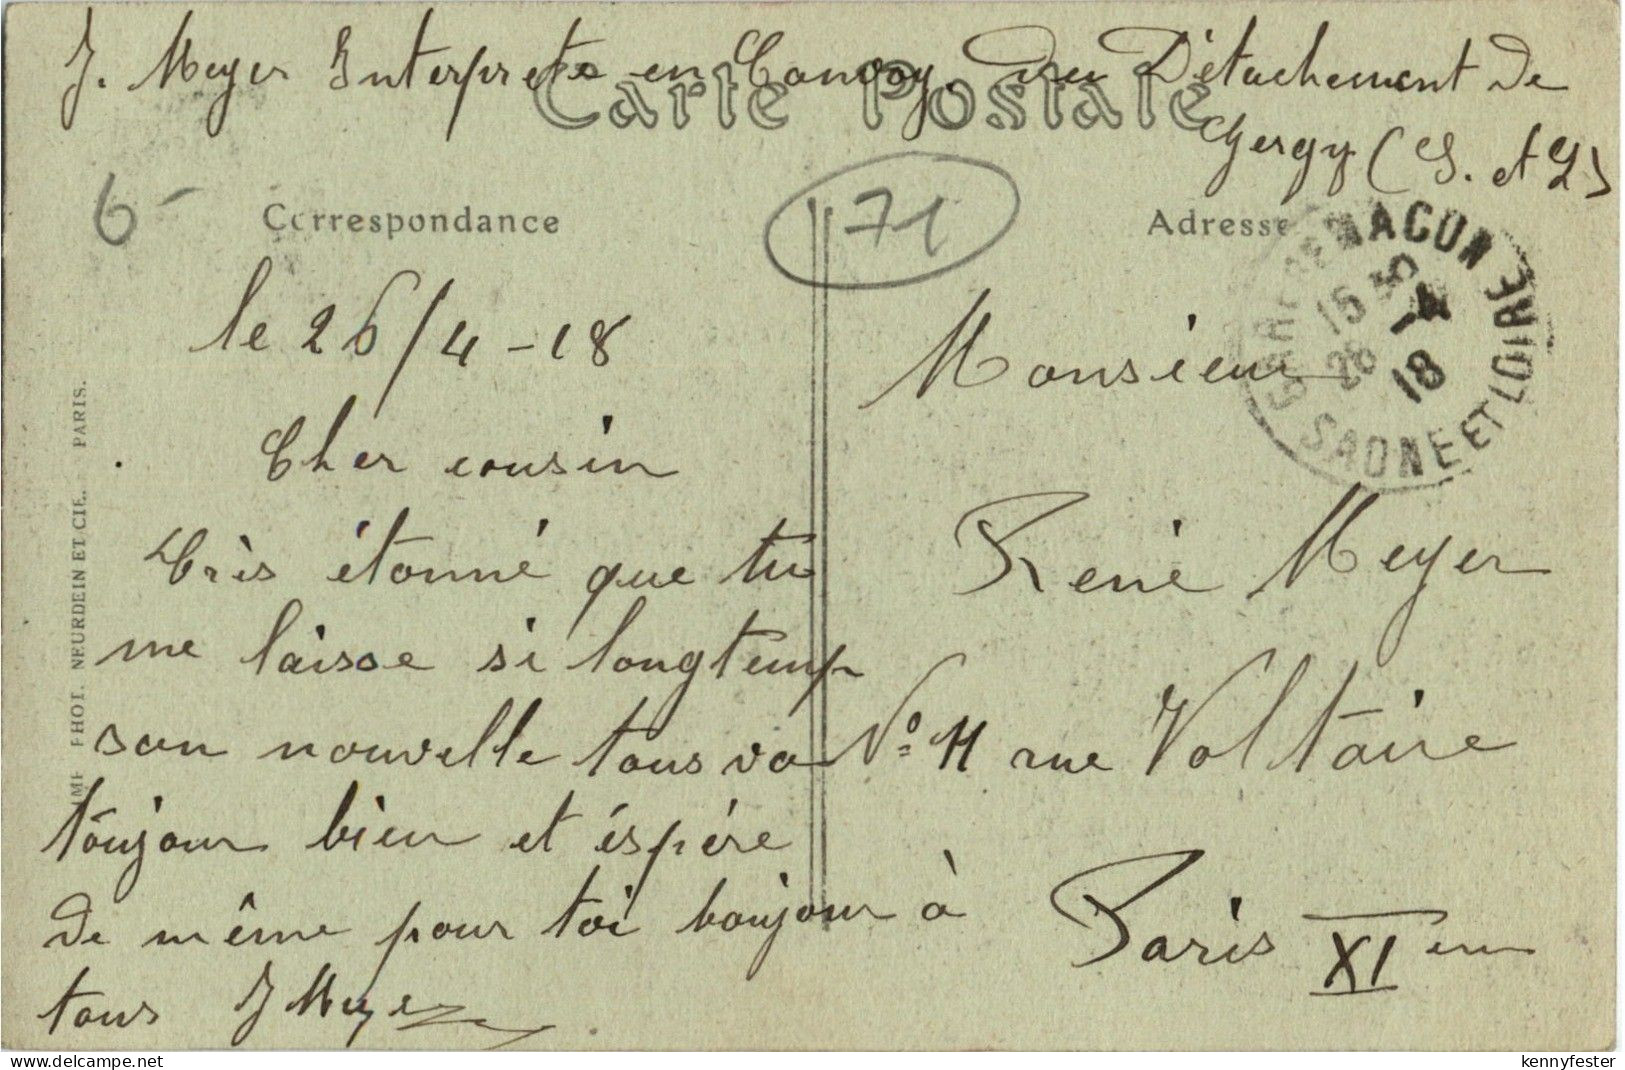 J. Meyer Interprete en Convoy, du Détachement de
Gergy (S. et L)
Carte Postale
6-
71
Correspondance
Adresse
GARE DE MACON
15 30
26 -4
18
SAONE ET LOIRE
le 26/4-18
Cher cousin
Très étonné que tu
me laisse si longtemp
san nouvelle tous va
toujour bien et éspére
de même pour toi boujour à
tous J Meyer
Monsieur
René Meyer
N° 11 rue Voltaire
Paris XIem
IMP. PHOT. NEURDEIN ET CIE. PARIS.
delcampe.net
kennyfester